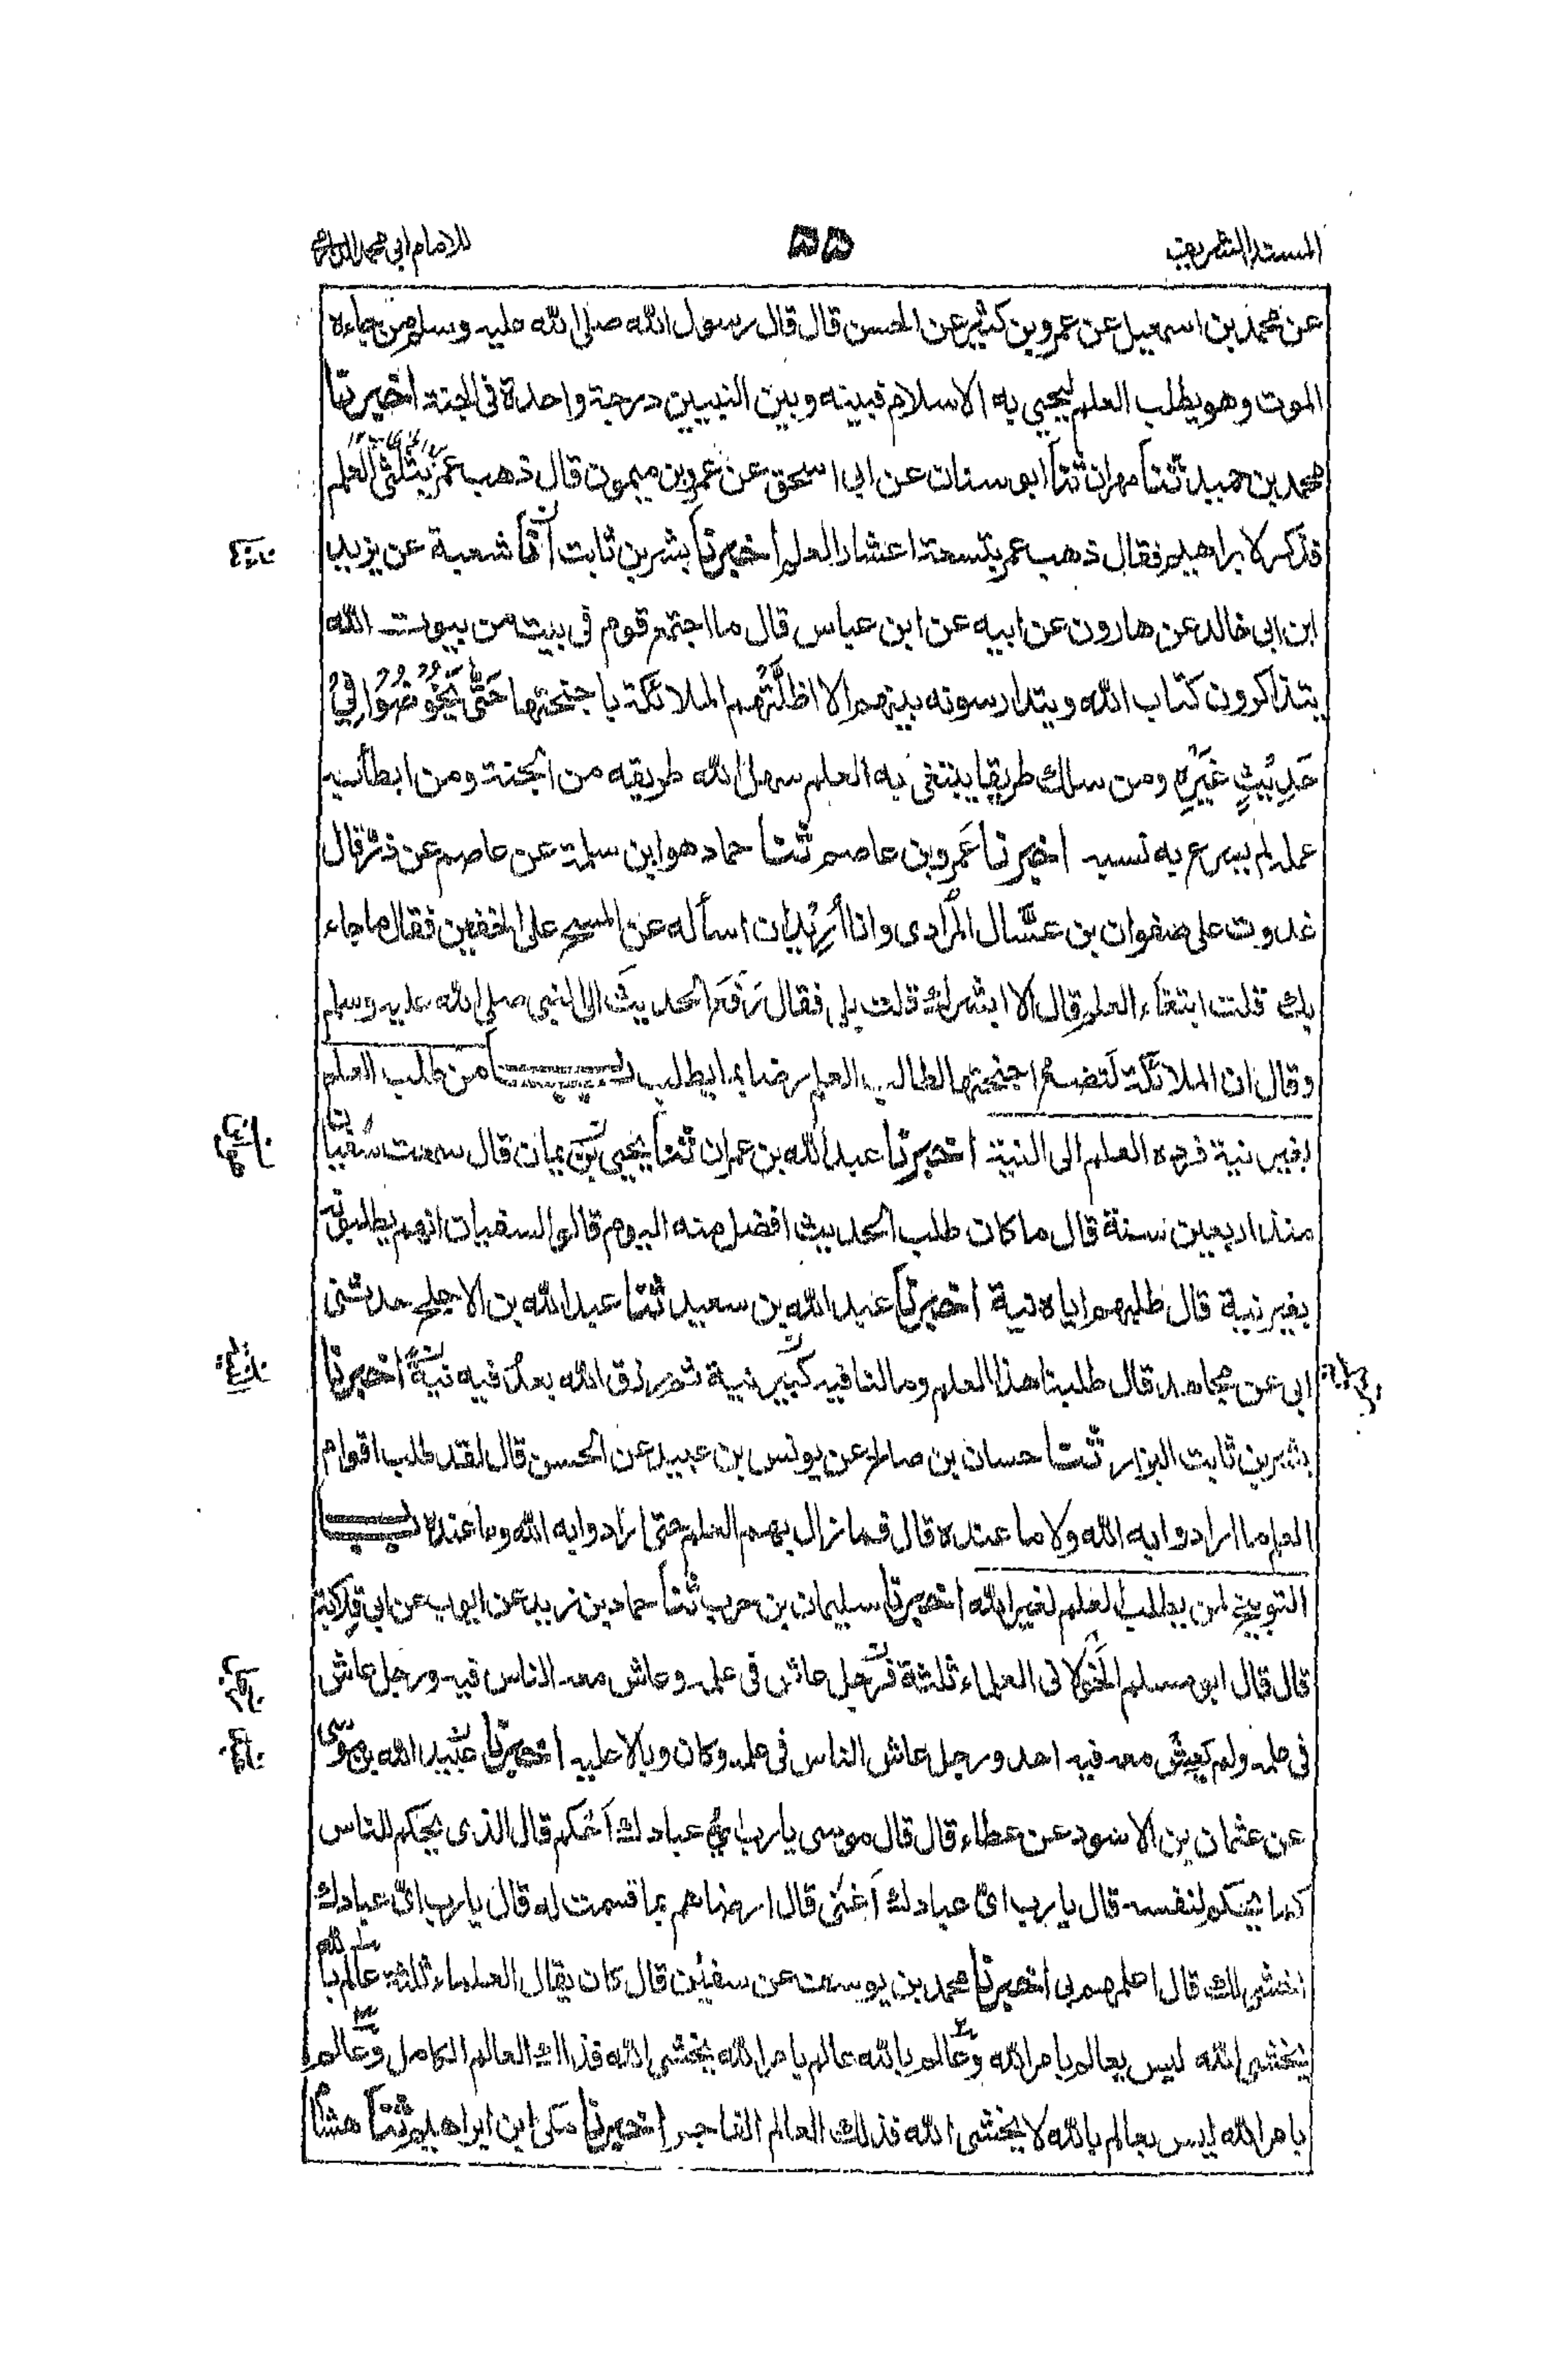 المسند الشريف
۵۵
للامام ابى محمد الدارمى
عن محمد بن اسمعيل عن عمرو بن كثير عن الحسن قال قال رسول الله صلى الله عليه وسلم من جاءه
الموت وهو يطلب العلم ليحيي به الاسلام فبينه وبين النبيين درجة واحدة فى الجنة اخبرنا
محمد بن حميد ثنا مهران ثنا ابو سنان عن ابى اسحق عن عمرو بن ميمون قال ذهب عمر بثلثى العلم
فذكر لابراهيم فقال ذهب عمر بتسعة اعشار العلم اخبرنا بشر بن ثابت انا شعبة عن يزيد
ابن ابى خالد عن هارون عن ابيه عن ابن عباس قال ما اجتمع قوم فى بيت من بيوت الله
يتذاكرون كتاب الله ويتدارسونه بينهم الا اظلَّتْهم الملائكة باجنحتها حَتّٰى يَخُوْضُوْا فِيْ
حَدِيْثٍ غَيْرِهِ ومن سلك طريقا يبتغى به العلم سهل الله طريقه من الجنة ومن ابطأ به
عمله لم يسرع به نسبه اخبرنا عَمرو بن عاصم ثنا حماد هو ابن سلمة عن عاصم عن زر قال
غدوت على صفوان بن عسَّال المُرادى وانا أُرِيْدُ ان اسأله عن المسح على الخفين فقال ما جاء
بك قلت ابتغاء العلم قال الا ابشرك قلت بلى فقال رَفَعَ الحديث الى النبى صلى الله عليه وسلم
وقال ان الملائكة لَتضع اجنحتها لطالب العلم رضا بما يطلب باب من طلب العلم
بغير نية فرده العلم الى النية اخبرنا عبد الله بن عمران ثنا يحيى بن يمان قال سمعت سُفيان
منذ اربعين سنة قال ما كان طلب الحديث افضل منه اليوم قالوا لسفيان انهم يطلبونه
بغير نية قال طلبهم اياه نية اخبرنا عبد الله بن سعيد ثنا عبد الله بن الاجلح حدثنى
ابى عن مجاهد قال طلبنا هذا العلم وما لنا فيه كبير نية ثم رزق الله بعدُ فيه نيةً اخبرنا
بشر بن ثابت البزار ثنا حسان بن صالح عن يونس بن عبيد عن الحسن قال لقد طلب اقوام
العلم ما ارادوا به الله ولا ما عنده قال فما زال بهم العلم حتى ارادوا به الله وما عنده باب
التوبيخ لمن يطلب العلم لغير الله اخبرنا سليمان بن حرب ثنا حماد بن زيد عن ايوب عن ابى قِلابة
قال قال ابو مسلم الخَولانى العلماء ثلثة فرجل عاش فى علمه وعاش معه الناس فيه ورجل عاش
فى علمه ولم يَعِشْ معه فيه احد ورجل عاش الناس فى علمه وكان وبالا عليه اخبرنا عُبيد الله بن موسى
عن عثمان بن الاسود عن عطاء قال قال موسى يا رب اىُّ عبادك اَحْكَم قال الذى يحكم للناس
كما يحكم لنفسه قال يا رب اىّ عبادك اَغنٰى قال ارضاهم بما قسمت له قال يا رب اىّ عبادك
اخشى لك قال اعلمهم بى اخبرنا محمد بن يوسف عن سفيٰن قال كان يقال العلماء ثلثة عالم بالله
يخشى الله ليس بعالم بامر الله وعالم بالله عالم بامر الله يخشى الله فذاك العالم الكامل وعالم
بامر الله ليس بعالم بالله لا يخشى الله فذلك العالم الفاجر اخبرنا مكى ابن ابراهيم ثنا هشام